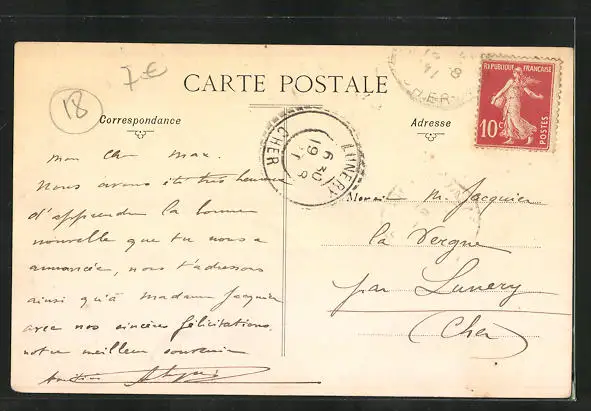 7€
18
CARTE POSTALE
Correspondance
Adresse
REPUBLIQUE FRANÇAISE
10c
POSTES
CHER
LUNERY
CHER
6 30
19
mon cher Max.
Nous avons été très heureux
d'apprendre la bonne
nouvelle que tu nous a
annoncée, nous t'adressons
ainsi qu'à madame Jacquier
avec nos sincères félicitations.
notre meilleur souvenir
Monsieur M. Jacquier
la Vergne
par Lunery
(Cher)